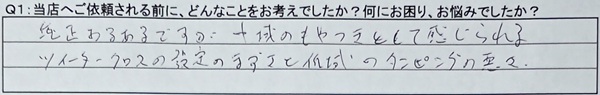 Q1:当店へご依頼される前に、どんなことをお考えでしたか?何にお困り、お悩みでしたか?
純正あるあるですが、中域のもやつきとして感じられる
ツイータークロスの設定のまずさと低域のダンピングの悪さ。